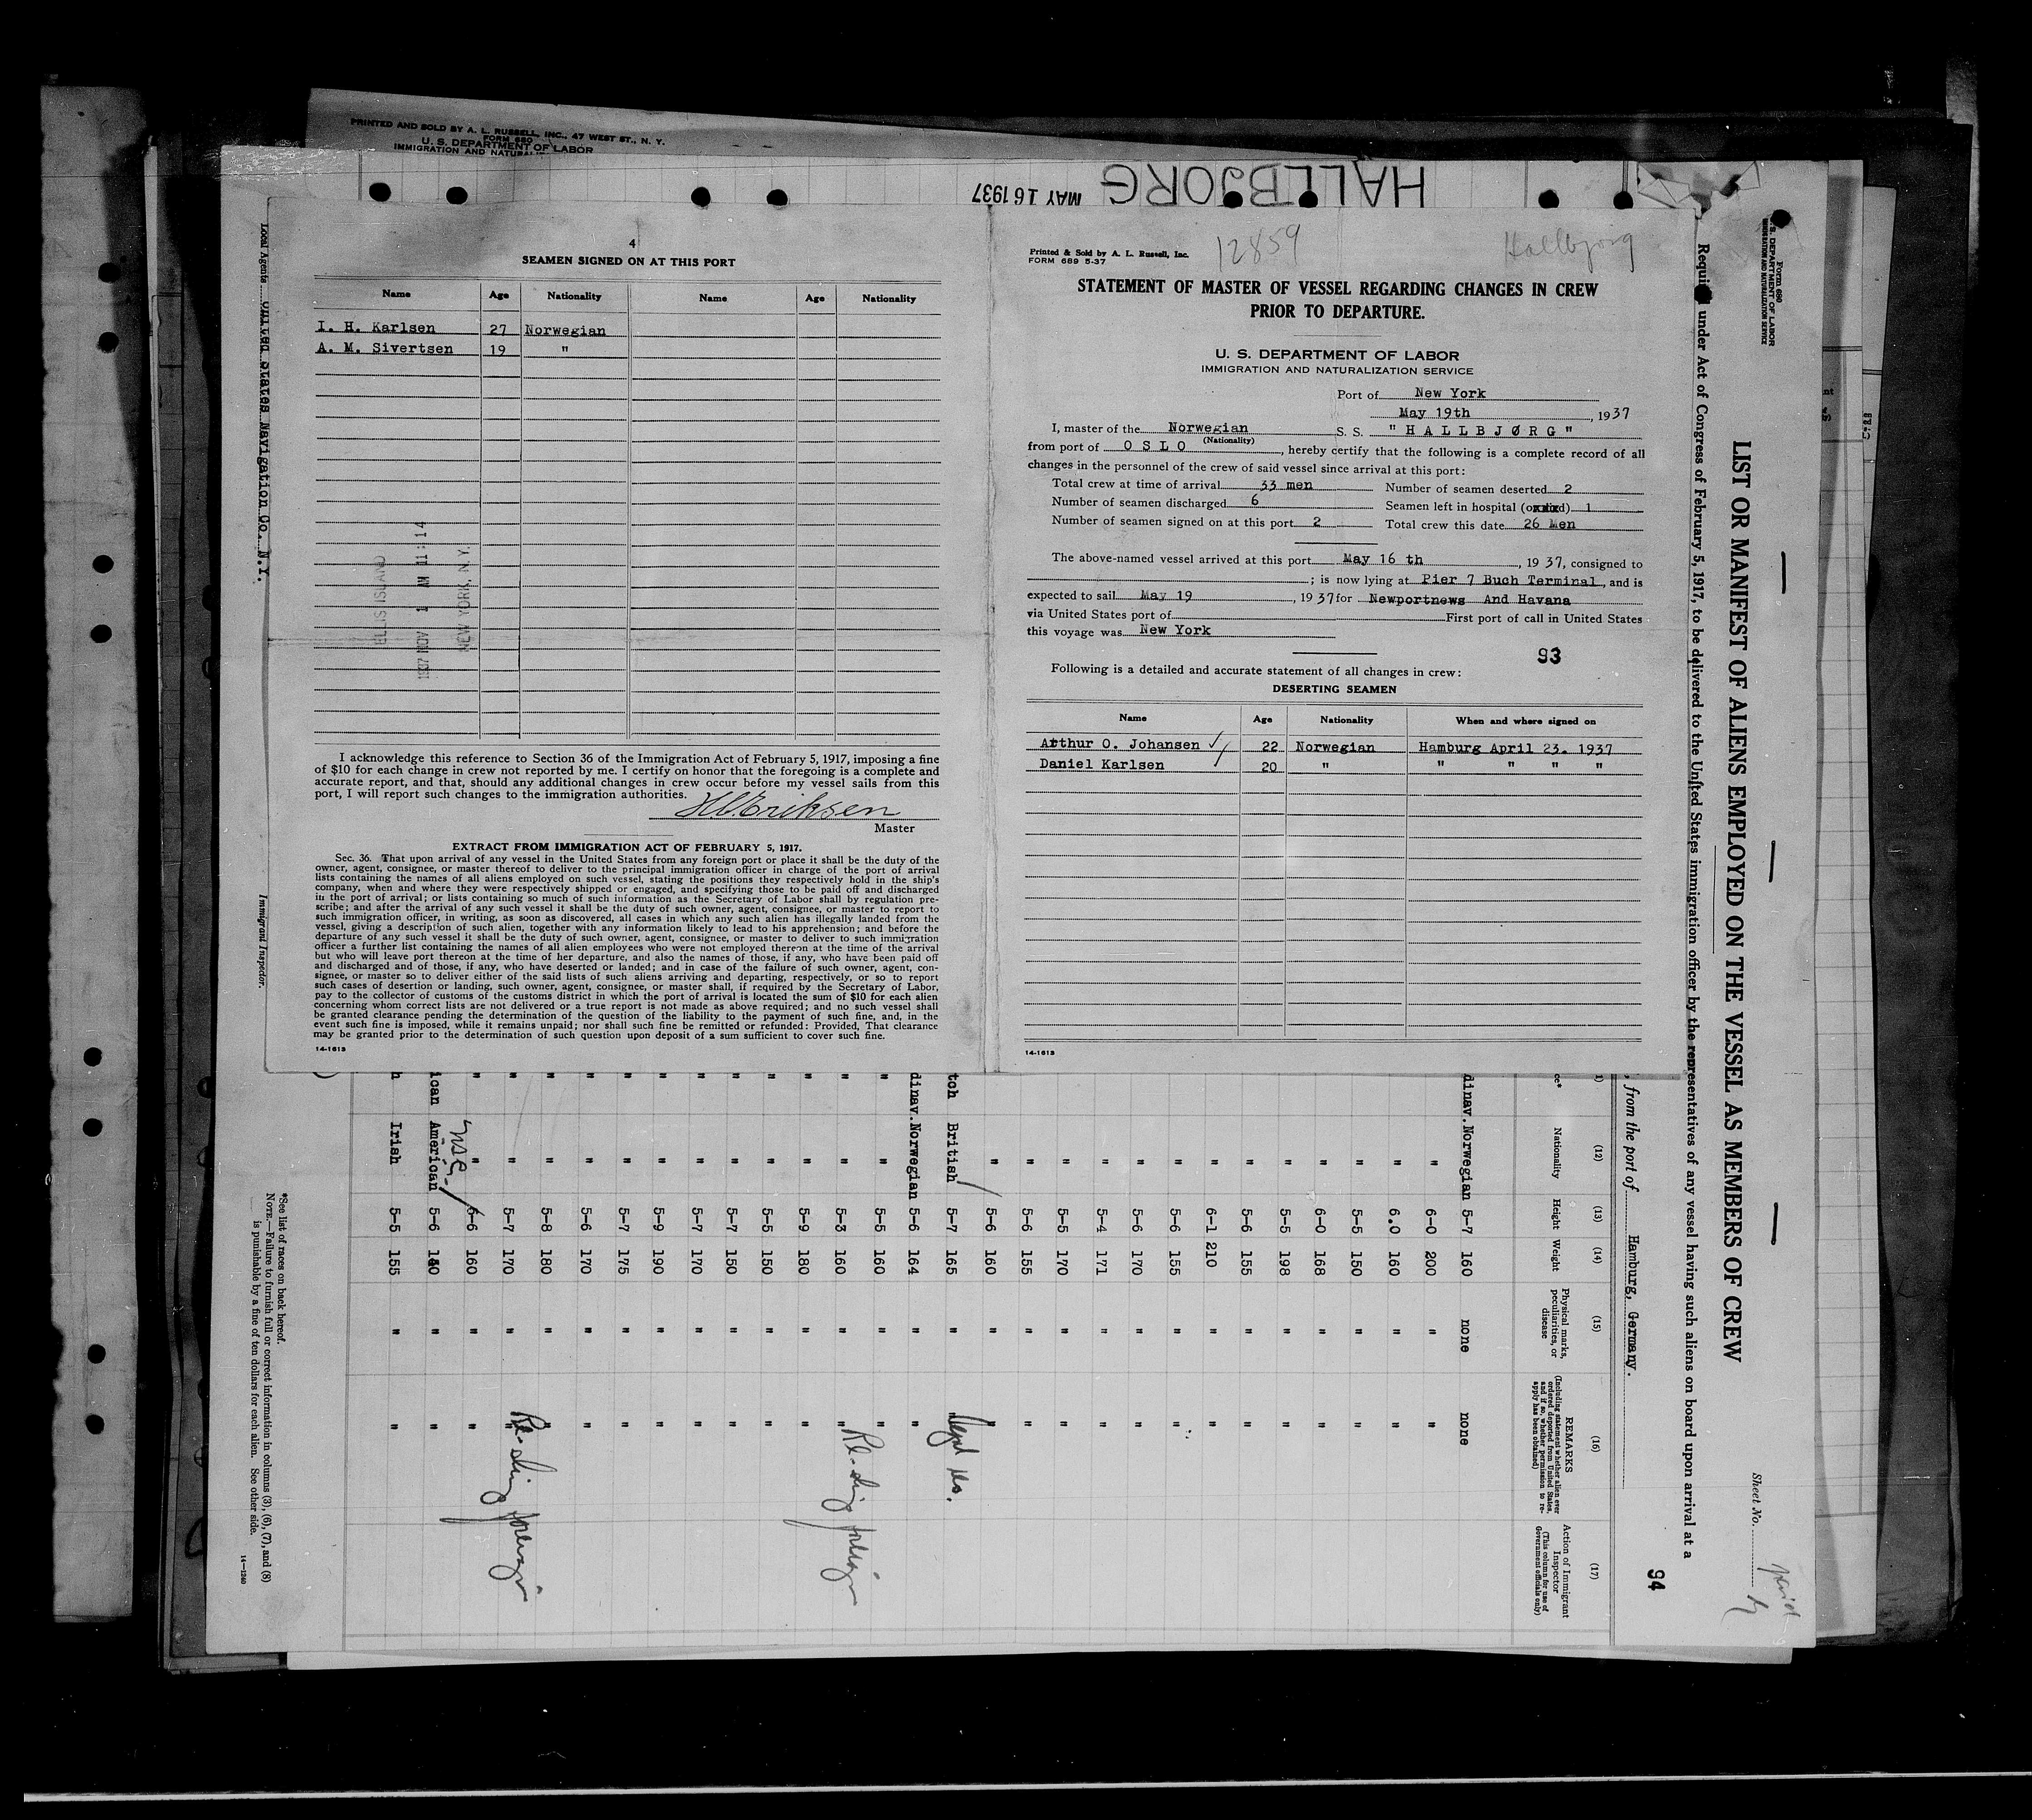 PRINTED AND SOLD BY A. L. RUSSELL, INC., 47 WEST ST., N. Y.
FORM 680
U. S. DEPARTMENT OF LABOR
HALLBJORG
MAY 16 1937
4
SEAMEN SIGNED ON AT THIS PORT
Name Age Nationality Name Age Nationality
I. H. Karlsen 27 Norwegian
A. M. Sivertsen 19 "
ELLIS ISLAND
1937 NOV 1 AM 11:14
NEW YORK, N.Y.
I acknowledge this reference to Section 36 of the Immigration Act of February 5, 1917, imposing a fine
of $10 for each change in crew not reported by me. I certify on honor that the foregoing is a complete and
accurate report, and that, should any additional changes in crew occur before my vessel sails from this
port, I will report such changes to the immigration authorities.
Master
EXTRACT FROM IMMIGRATION ACT OF FEBRUARY 5, 1917.
Sec. 36. That upon arrival of any vessel in the United States from any foreign port or place it shall be the duty of the
owner, agent, consignee, or master thereof to deliver to the principal immigration officer in charge of the port of arrival
lists containing the names of all aliens employed on such vessel, stating the positions they respectively hold in the ship's
company, when and where they were respectively shipped or engaged, and specifying those to be paid off and discharged
in the port of arrival; or lists containing so much of such information as the Secretary of Labor shall by regulation pre-
scribe; and after the arrival of any such vessel it shall be the duty of such owner, agent, consignee, or master to report to
such immigration officer, in writing, as soon as discovered, all cases in which any such alien has illegally landed from the
vessel, giving a description of such alien, together with any information likely to lead to his apprehension; and before the
departure of any such vessel it shall be the duty of such owner, agent, consignee, or master to deliver to such immigration
officer a further list containing the names of all alien employees who were not employed thereon at the time of the arrival
but who will leave port thereon at the time of her departure, and also the names of those, if any, who have been paid off
and discharged and of those, if any, who have deserted or landed; and in case of the failure of such owner, agent, con-
signee, or master so to deliver either of the said lists of such aliens arriving and departing, respectively, or so to report
such cases of desertion or landing, such owner, agent, consignee, or master shall, if required by the Secretary of Labor,
pay to the collector of customs of the customs district in which the port of arrival is located the sum of $10 for each alien
concerning whom correct lists are not delivered or a true report is not made as above required; and no such vessel shall
be granted clearance pending the determination of the question of the liability to the payment of such fine, and, in the
event such fine is imposed, while it remains unpaid; nor shall such fine be remitted or refunded: Provided, That clearance
may be granted prior to the determination of such question upon deposit of a sum sufficient to cover such fine.
14-1613
12859 Hallbjorg
Printed & Sold by A. L. Russell, Inc.
FORM 689 5-37
STATEMENT OF MASTER OF VESSEL REGARDING CHANGES IN CREW
PRIOR TO DEPARTURE.
U. S. DEPARTMENT OF LABOR
IMMIGRATION AND NATURALIZATION SERVICE
Port of New York
May 19th, 1937
I, master of the Norwegian S. S. "HALLBJØRG"
(Nationality)
from port of OSLO, hereby certify that the following is a complete record of all
changes in the personnel of the crew of said vessel since arrival at this port:
Total crew at time of arrival 33 men Number of seamen deserted 2
Number of seamen discharged 6 Seamen left in hospital 1
Number of seamen signed on at this port 2 Total crew this date 26 Men
The above-named vessel arrived at this port May 16 th, 1937, consigned to
; is now lying at Pier 7 Buch Terminal, and is
expected to sail May 19, 1937 for Newportnews And Havana
via United States port of First port of call in United States
this voyage was New York
93
Following is a detailed and accurate statement of all changes in crew:
DESERTING SEAMEN
Name Age Nationality When and where signed on
Arthur O. Johansen 22 Norwegian Hamburg April 23. 1937
Daniel Karlsen 20 " " " " "
14-1613
Form 680
U. S. DEPARTMENT OF LABOR
IMMIGRATION AND NATURALIZATION SERVICE
Sheet No.
LIST OR MANIFEST OF ALIENS EMPLOYED ON THE VESSEL AS MEMBERS OF CREW
under Act of Congress of February 5, 1917, to be delivered to the United States immigration officer by the representatives of any vessel having such aliens on board upon arrival at a
94
, from the port of Hamburg, Germany.
(12) (13) (14) (15) (16) (17)
Nationality Height Weight Physical marks, peculiarities, or disease REMARKS (Including statement whether alien ever ordered deported from United States, and if so, whether permission to re-apply has been obtained) Action of Immigrant Inspector (This column for use of Government officials only)
dinav. Norwegian 5-7 160 none none
" 6-0 200 " "
" 6.0 160 " "
" 5-5 150 " "
" 6-0 168 " "
" 5-5 198 " "
" 5-6 155 " "
" 6-1 210 " "
" 5-6 155 " "
" 5-6 170 " "
" 5-4 171 " "
" 5-5 170 " "
" 5-6 155 " "
" 5-6 160 " "
tch British 5-7 165 " "
dinav. Norwegian 5-6 164 " "
" " 5-5 160 " "
" " 5-3 160 " "
" " 5-9 180 " "
" " 5-5 150 " "
" " 5-7 150 " "
" " 5-7 170 " "
" " 5-9 190 " "
" " 5-7 175 " "
" " 5-6 170 " "
" " 5-8 180 " "
" " 5-7 170 " "
" " 5-6 160 " "
ican American 5-6 140 " "
h Irish 5-5 155 " "
*See list of races on back hereof.
NOTE.—Failure to furnish full or correct information in columns (3), (6), (7), and (8)
is punishable by a fine of ten dollars for each alien. See other side.
14-1240
Local Agents United States Navigation Co. N.Y.
Immigrant Inspector.